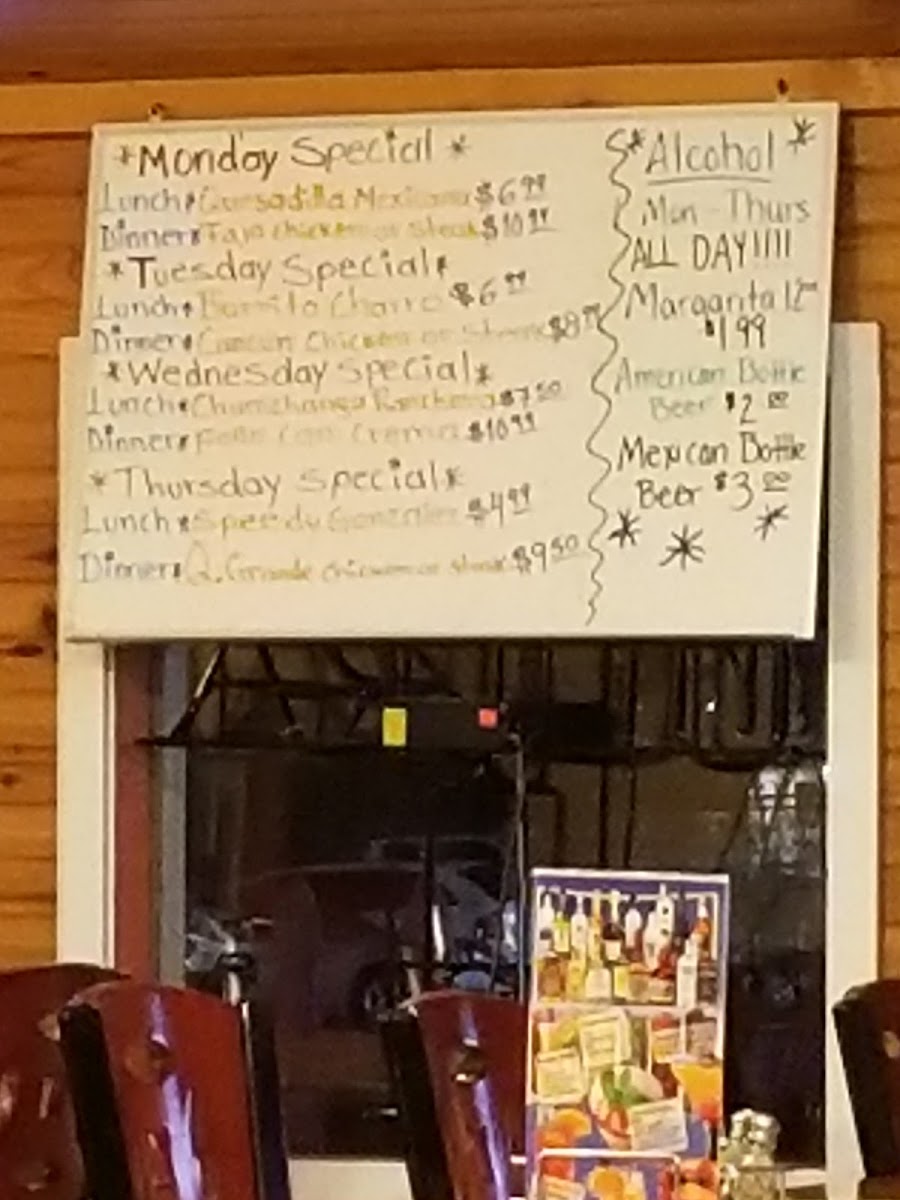 *Monday Special*
Lunch* Quesadilla Mexicana $6.99
Dinner* Faja chicken or steak $10.99
*Tuesday Special*
Lunch* Burrito Charro $6.99
Dinner* Cancun Chicken or Steak $8.99
*Wednesday Special*
Lunch* Chimichanga Ranchera $7.50
Dinner* Pollo Con Crema $10.99
*Thursday Special*
Lunch* Speedy Gonzales $4.99
Dinner* Q. Grande chicken or steak $9.50
*Alcohol*
Mon - Thurs
ALL DAY!!!!
Margarita 12oz
$1.99
American Bottle
Beer $2.00
Mexican Bottle
Beer $3.00